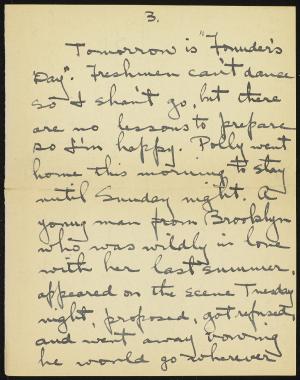 3.
Tomorrow is "Founder's
Day". Freshmen can't dance
so I shan't go, but there
are no lessons to prepare
so I'm happy. Polly went
home this morning to stay
until Sunday night. A
young man from Brooklyn
who was wildly in love
with her last summer,
appeared on the scene Tuesday
night, proposed, got refused,
and went away vowing
he would go wherever